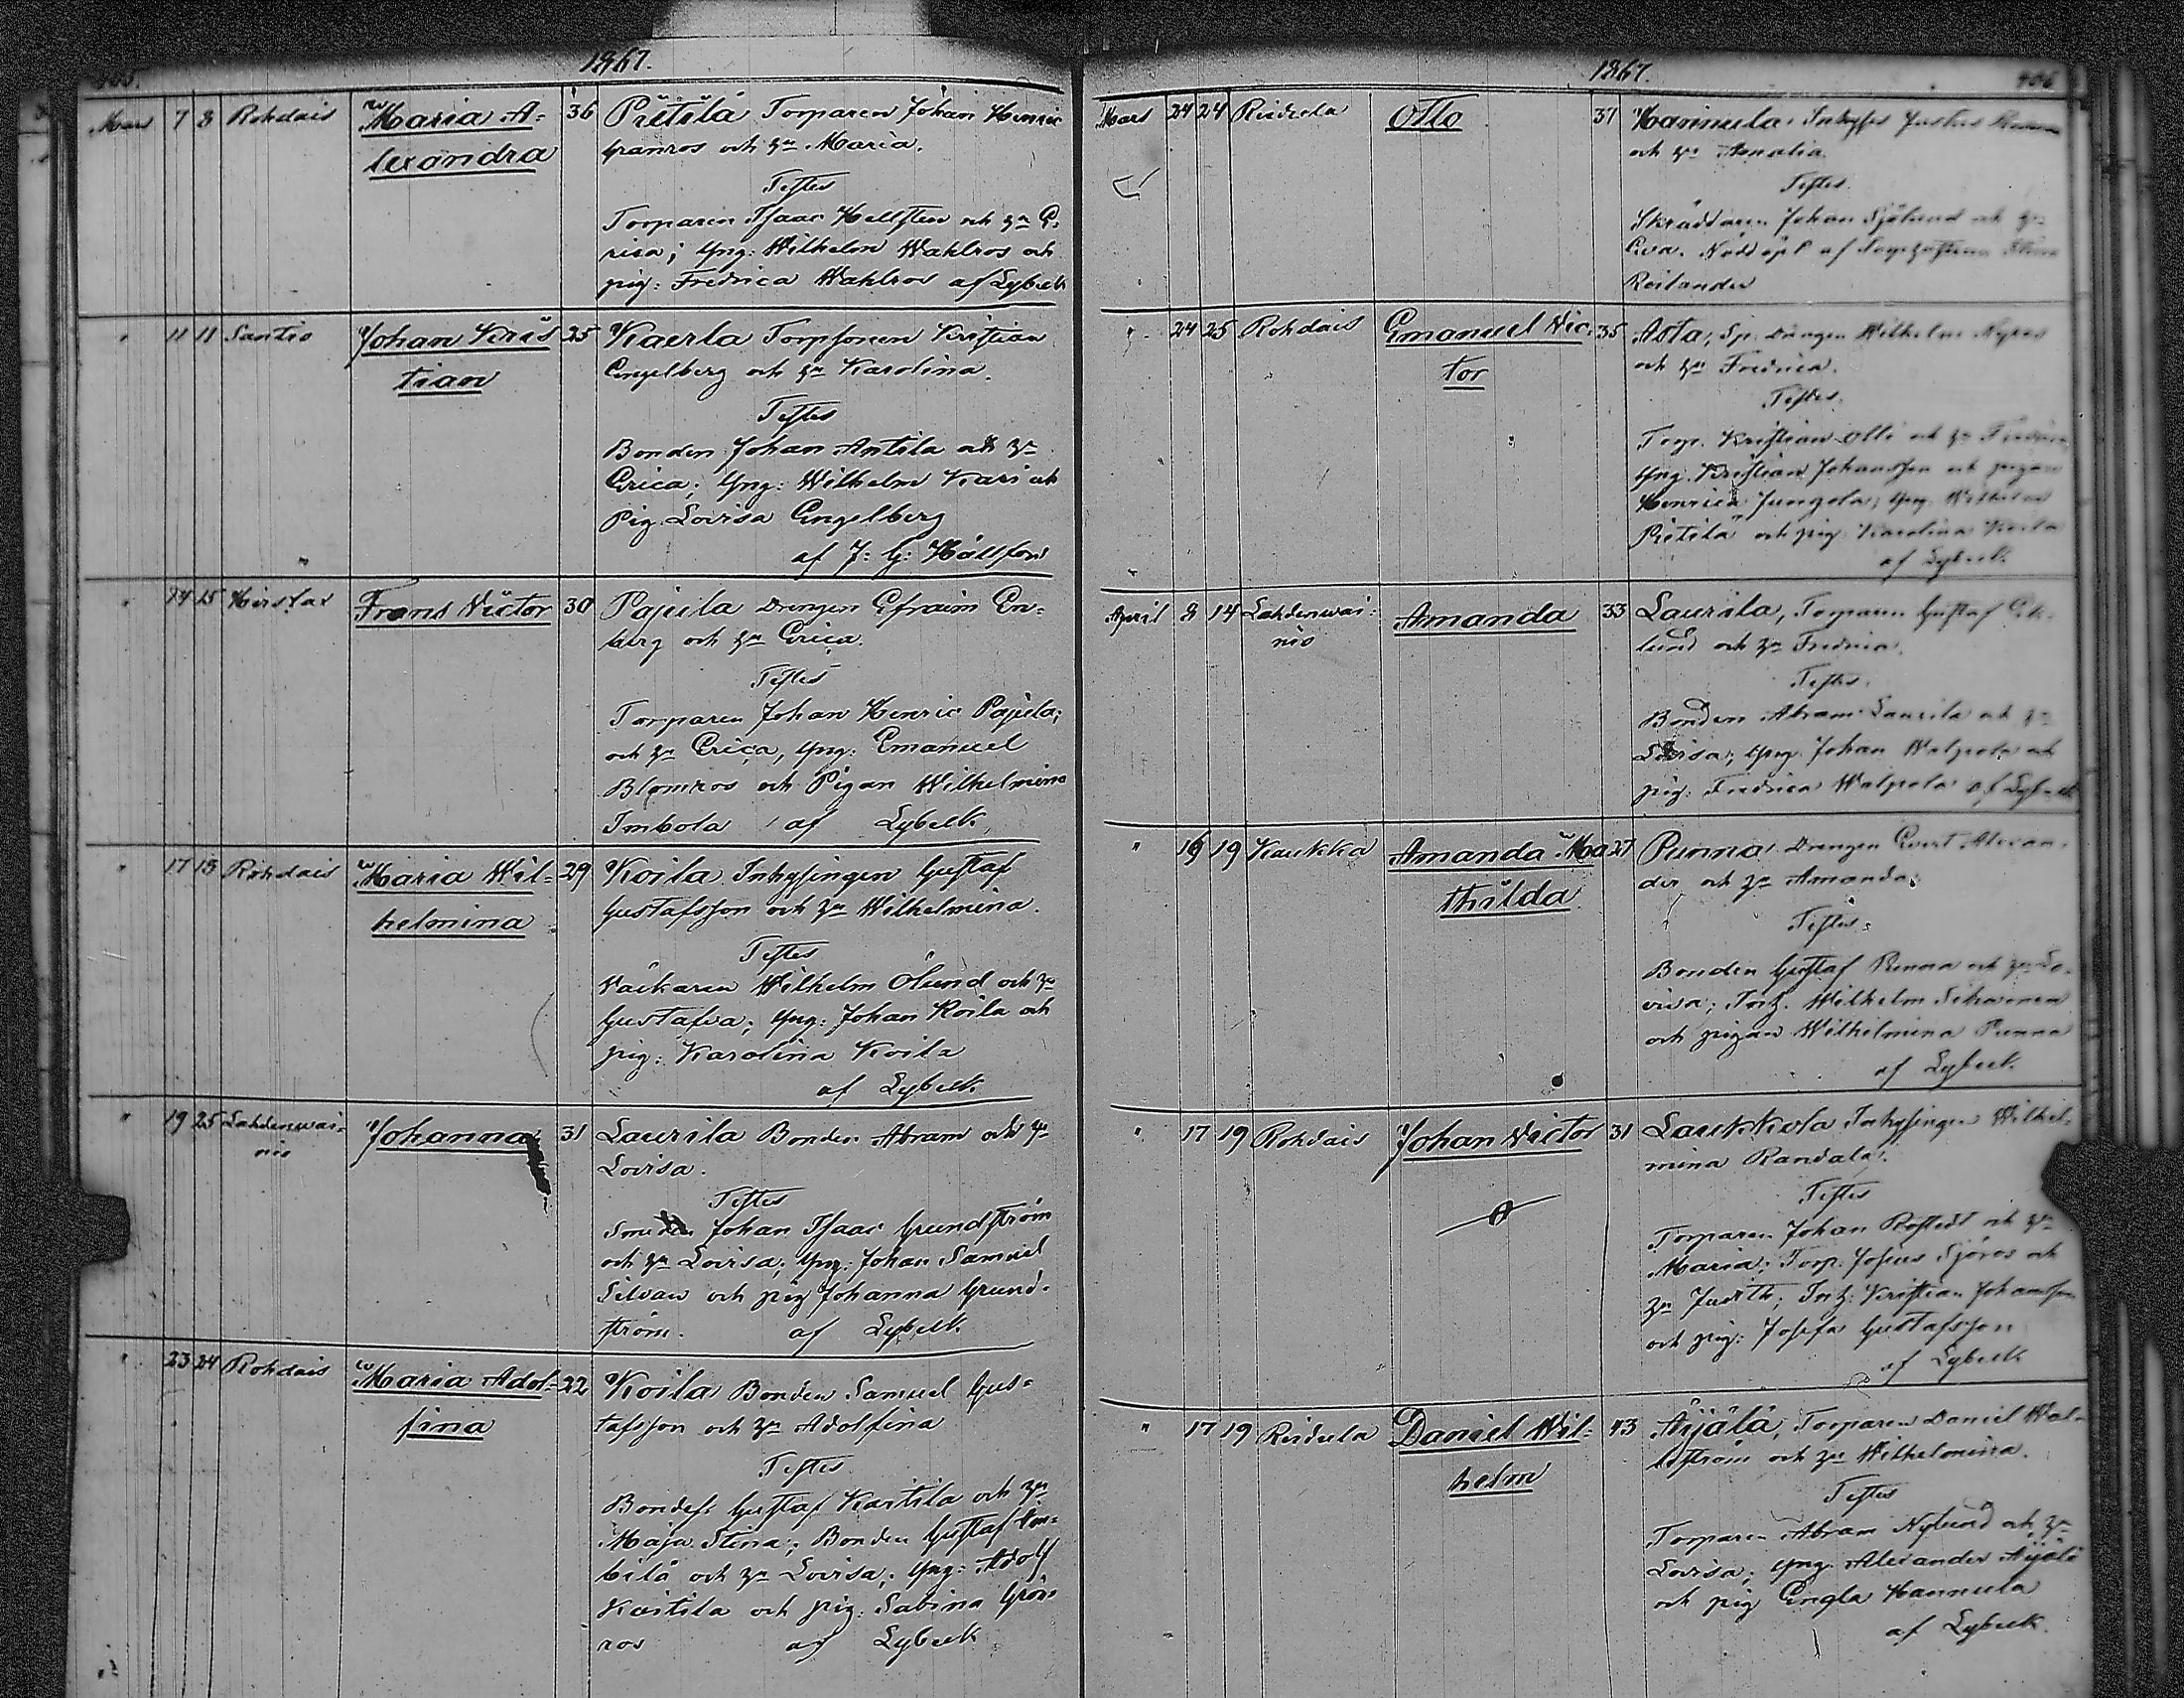 405.
1867.
Mars 7 8 Rohdais Maria A= 36 Pietilä Torparen Johan Henric
lexandra Granros och hu Maria.
Testes
Torparen Isaac Hellsten och hu E-
rica; Yng: Wilhelm Wahlros och
pig: Fredrica Wahlros af Lybeck
" 11 11 Santio Johan Kris 25 Kaerla Torpsonen Kristian
tian Engelberg och hu Karolina.
Testes
Bonden Johan Antila och hu
Erica; Yng: Wilhelm Kari och
Pig. Lovisa Engelberg
af J: G: Hällfors
" 14 15 Frans Victor 30 Pajula Drengen Efraim En=
berg och hu Erica.
Testes
Torparen Johan Henric Pajula;
och hu Erica, Yng: Emanuel
Blomros och Pigan Wilhelmina
Imbola af Lybeck
" 17 18 Rohdais Maria Wil= 29 Koila Inhysingen Gustaf
helmina Gustafsson och hu Wilhelmina.
Testes
Wilhelm Ölund och hu
Gustafva; Yng: Johan Koila och
pig: Karolina Koila
af Lybeck.
" 19 25 Lahdenwai= Johanna 31 Laurila Bonden Abram och hu
nio Lovisa.
Testes
Smeden Johan Isaac Grundström
och hu Lovisa; Yng: Johan Samuel
och pig Johanna Grund-
ström. af Lybeck.
" 23 24 Rohdais Maria Adol= 22 Koila Bonden Samuel Gus=
fina tafsson och hu Adolfina
Testes
Bondes: Gustaf Kartila och hu
Maja Stina; Bonden Gustaf Im=
bilä och hu Lovisa; Yng: Adolf
och pig: Sabina Grön
ros af Lybeck
1867.
406
Mars 24 24 Reidula Otto 37 Hannula, Inhyses Justus
och hu Amalia.
Testes.
Skräddaren Johan Sjölund och hu
Eva. Nöddöpt af
" 24 25 Rohdais Emanuel Vic= 35 Asta, Drängen Wilhelm Nyros
tor och hu Fredrica.
Testes.
Torp. Kristian Olli och hu Fredrica,
Yng. Kristian Johansson och pigan
Henrica Jungola; Yng. Wilhelm
Pietilä och pig Karolina Koila
af Lybeck.
April 8 14 Lahdenwai= Amanda 33 Laurila, Torparen Gustaf Ek-
nio lund och hu Fredrica.
Testes.
Bonden Abram Laurila och hu
Lovisa; Yng. Johan Walpola och
pig: Fredrica Walpola af Lybeck
" 16 19 Kaukka Amanda Ma 27 Punna, Drengen Evert Alexan-
thilda der och hu Amanda.
Testes:
Bonden Gustaf Punna och hu Lo-
visa; Inh. Wilhelm
och pigan Wilhelmina Punna
af Lybeck.
" 17 19 Rohdais Johan Victor 31 Laukkola Inhysingen Wilhel-
mina Randala.
Testes
Torparen Johan Rostedt och hu
Maria; Torp. Josua Sjöros och
hu Judith; Inh: Kristian Johansson
och pig: Josefa Gustafsson
af Lybeck
" 17 19 Reidula Daniel Wil= 43 Äijälä, Torparen Daniel Wal-
helm ström och hu Wilhelmina.
Testes
Torparen Abram Nylund och hu
Lovisa; Yng. Alexander Äijälä
och pig Engla Hannula
af Lybeck.